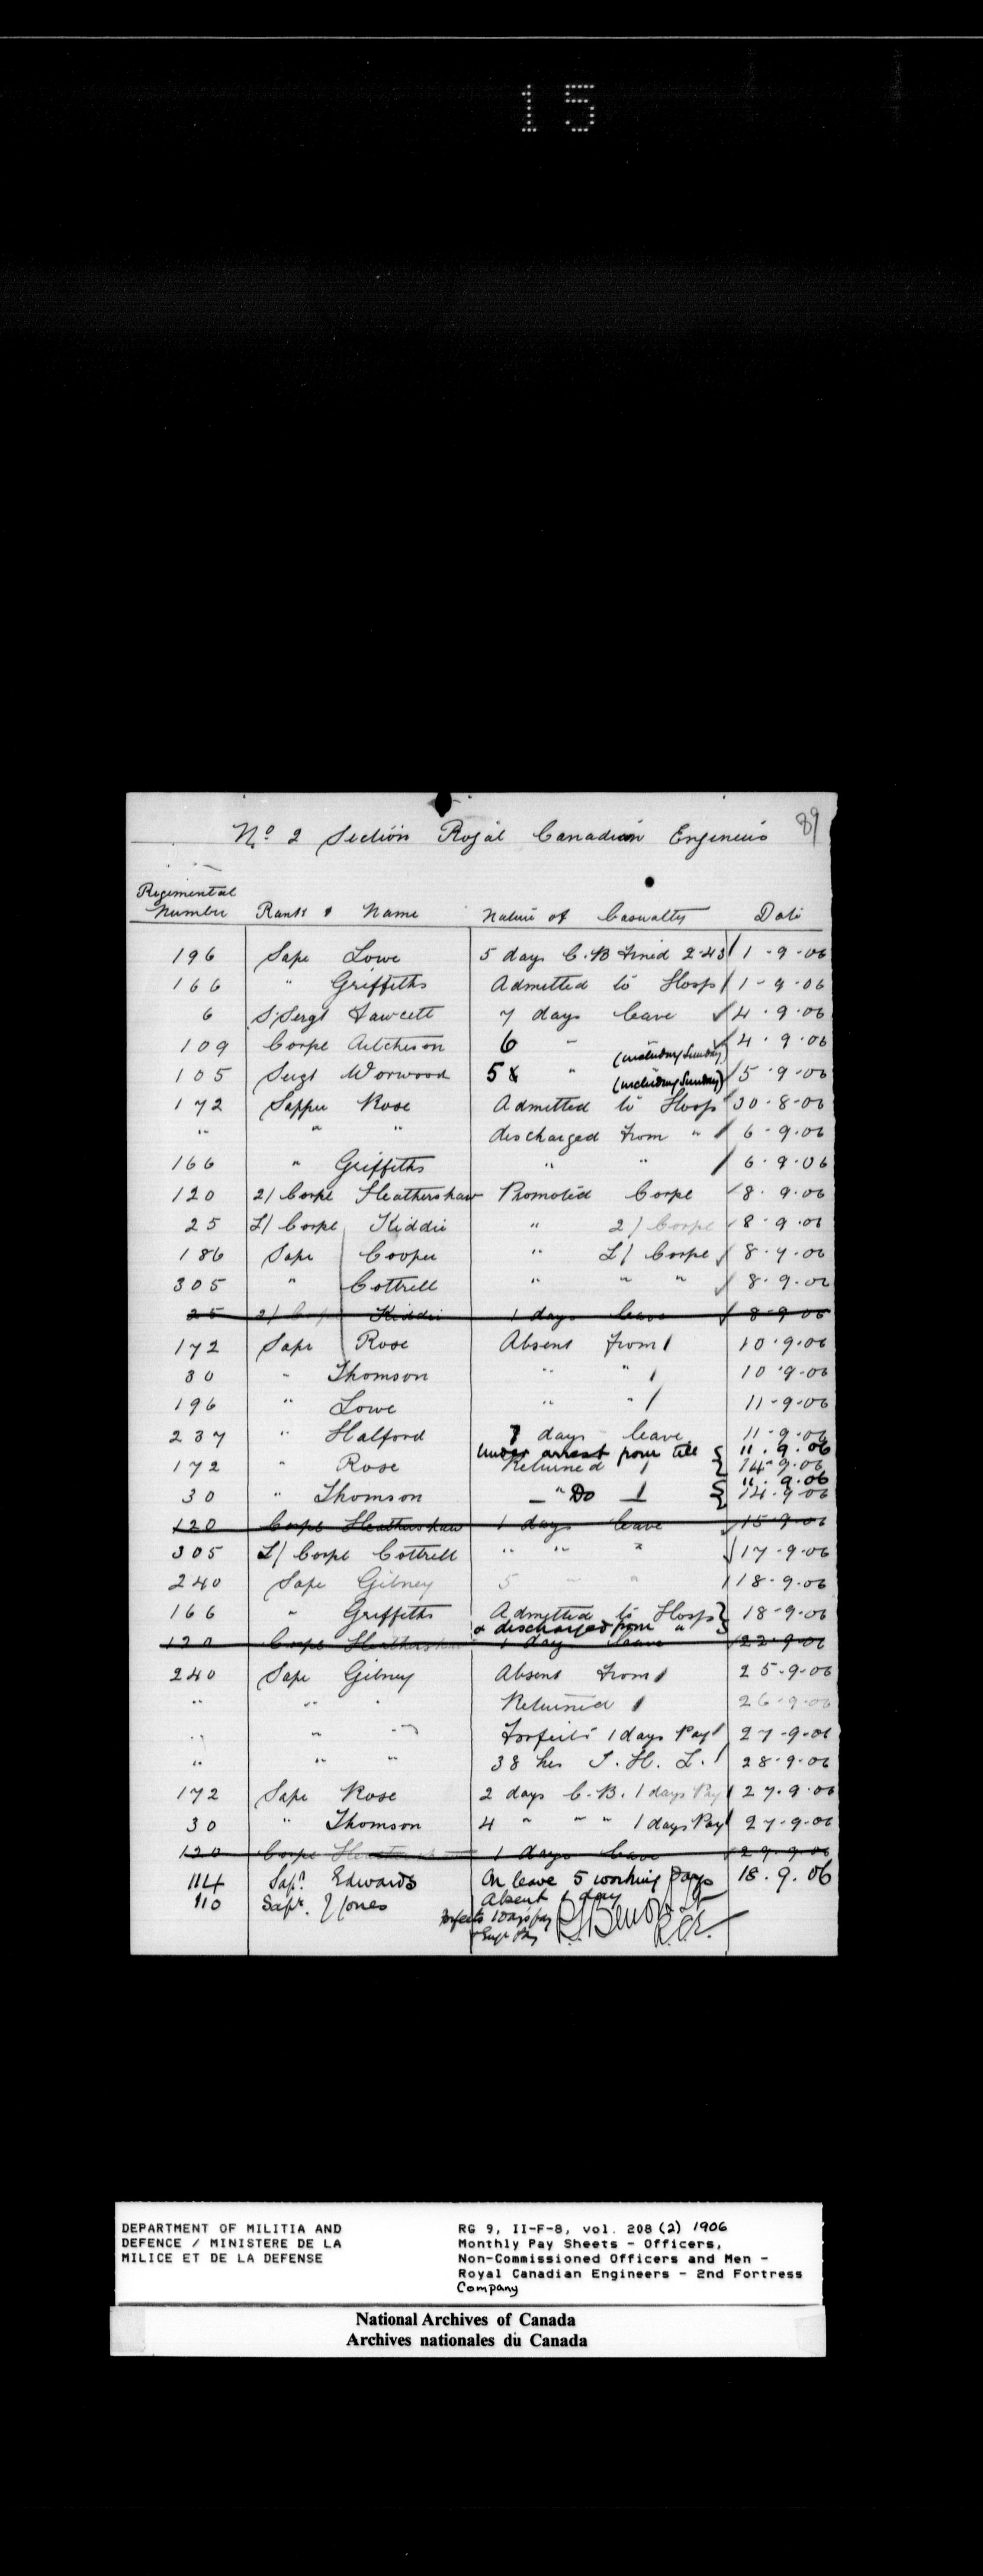 15
89
No 2 Section Royal Canadian Engineers
Regimental
Number Rank & Name Nature of Casualty Date
196 Sapr Lowe 5 days C.B Fined 2.43 1-9-06
166 " Griffiths Admitted to Hosp 1-9-06
6 S. Sergt Fawcett 7 days leave 4.9.06
109 Corpl Aitcheson 6 " (including Sunday) 4.9.06
105 Sergt Worwood 5 " (including Sunday) 5.9.06
172 Sapper Rose Admitted to Hosp 30-8-06
" " " discharged from " 6-9.06
166 " Griffiths " " 6.9.06
120 2/Corpl Heathershaw Promoted Corpl 8.9.06
25 L/Corpl Kiddie " 2/Corpl 8-9.06
186 Sapr Cooper " L/Corpl 8.9.06
305 " Cottrell " " " 8.9.06
25 2/Corpl Kiddie 1 days leave 8-9-06
172 Sapr Rose Absent from 10.9.06
30 " Thomson " " 10.9-06
196 " Lowe " " 11-9-06
237 " Halford 7 days leave 11-9-06
under arrest from till 11.9.06
172 " Rose Returned 14-9-06
11.9.06
30 " Thomson " Do 14.9-06
120 Corpl Heathershaw 1 days leave 15-9-06
305 L/Corpl Cottrell " " " 17-9.06
240 Sapr Gibney 5 " " 18-9.06
166 " Griffiths Admitted to Hosp 18-9-06
& discharged from "
120 Corpl Heathershaw 1 day leave 22-9-06
240 Sapr Gibney Absent from 25-9-06
" " " Returned 26-9-06
" " " Forfeits 1 days Pay 27-9-06
" " " 38 hrs I. H. L. 28-9-06
172 Sapr Rose 2 days C.B. 1 days Pay 27.9.06
30 " Thomson 4 " " " 1 days Pay 27-9-06
120 Corpl Heathershaw 1 days leave 29-9-06
114 Sapr Edwards On leave 5 working days 18.9.06
110 Sapr Jones Absent 1 day
Forfeits 1 Days pay
R.C.E.
DEPARTMENT OF MILITIA AND
DEFENCE / MINISTERE DE LA
MILICE ET DE LA DEFENSE
RG 9, II-F-8, vol. 208 (2) 1906
Monthly Pay Sheets - Officers,
Non-Commissioned Officers and Men -
Royal Canadian Engineers - 2nd Fortress
Company
National Archives of Canada
Archives nationales du Canada